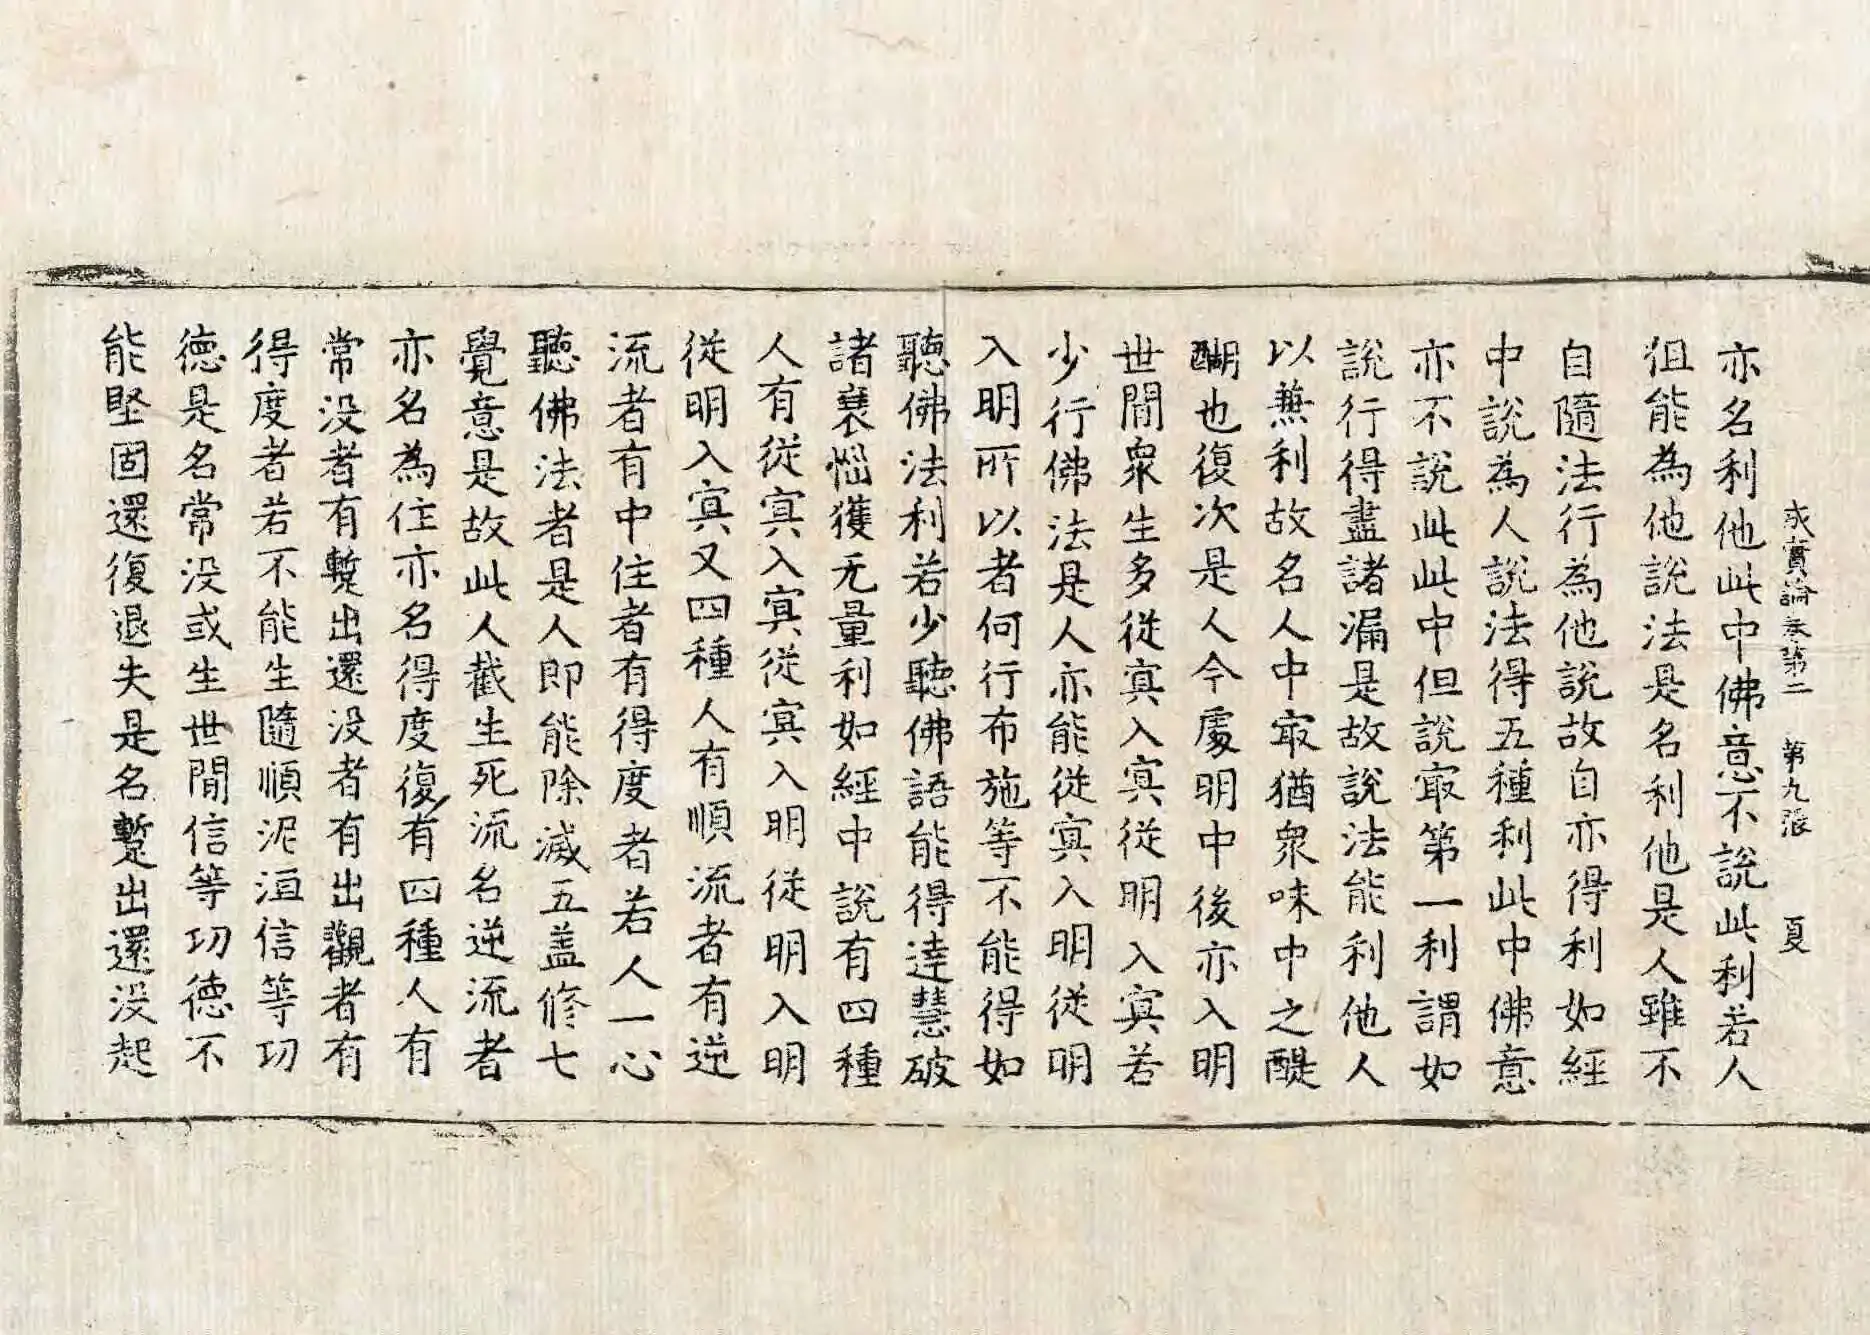 成實論卷第二 第九張 夏
亦名利他此中佛意不說此利若人
但能為他說法是名利他是人雖不
自隨法行為他說故自亦得利如經
中說為人說法得五種利此中佛意
亦不說此此中但說㝡第一利謂如
說行得盡諸漏是故說法能利他人
以兼利故名人中㝡猶衆味中之醍
醐也復次是人今處明中後亦入明
世間衆生多從冥入冥從明入冥若
少行佛法是人亦能從冥入明從明
入明所以者何行布施等不能得如
聽佛法利若少聽佛語能得達慧破
諸衰惱獲无量利如經中說有四種
人有從冥入冥從冥入明從明入明
從明入冥又四種人有順流者有逆
流者有中住者有得度者若人一心
聽佛法者是人即能除滅五盖修七
覺意是故此人截生死流名逆流者
亦名為住亦名得度復有四種人有
常没者有暫出還没者有出觀者有
得度者若不能生隨順泥洹信等功
德是名常没或生世間信等功德不
能堅固還復退失是名暫出還没起